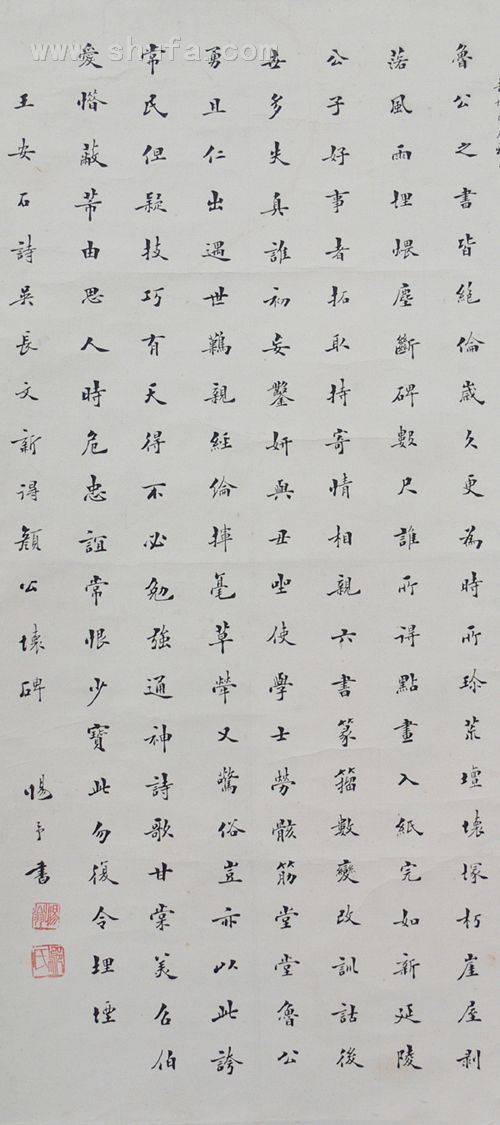 www.shufa.com
魯公之書皆絕倫歲久更為時所珍荒壇壞塚朽崖屋剥
落風雨埋煨塵斷碑數尺誰所得點畫入紙完如新延陵
公子好事者拓取持寄情相親六書篆籀數變改訓詁後
世多失真誰初妄鑿妍與丑坐使學士勞骸筋堂堂魯公
勇且仁出遇世難親經倫揮毫草犖又驚俗豈亦以此誇
常民但疑技巧有天得不必勉強通神詩歌甘棠美召伯
愛惜蔽芾由思人時危忠誼常恨少寶此勿復令埋堙
王安石詩吳長文新得顏公壞碑 惕予書